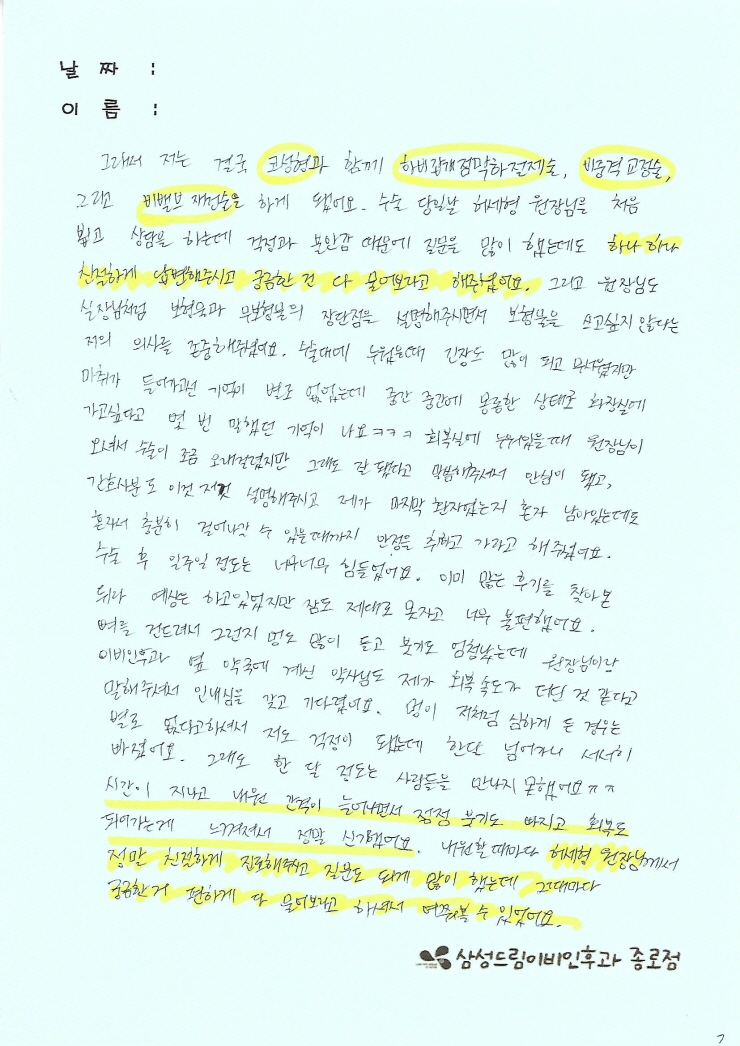 날 짜 :
이 름 :
그래서 저는 결국 코성형과 함께 하비갑개점막하절제술, 비중격교정술,
그리고 비밸브 재건술을 하게 됐어요. 수술 당일날 허세형 원장님을 처음
뵙고 상담을 하는데 걱정과 불안감 때문에 질문을 많이 했는데도 하나하나
친절하게 답변해주시고 궁금한 건 다 물어보라고 해주셨어요. 그리고 원장님도
실장님처럼 보형물과 무보형물의 장단점을 설명해주시면서 보형물을 쓰고싶지 않다는
저의 의사를 존중해주셨어요. 수술대에 누웠을때 긴장도 많이 되고 무서웠지만
마취가 들어가고선 기억이 별로 없었는데 중간 중간에 몽롱한 상태로 화장실에
가고싶다고 몇 번 말했던 기억이 나요ㅋㅋㅋ 회복실에 누워있을때 원장님이
오셔서 수술이 조금 오래걸렸지만 그래도 잘 됐다고 말씀해주셔서 안심이 됐고,
간호사분도 이것 저것 설명해주시고 제가 마지막 환자였는지 혼자 남아있는데도
혼자서 충분히 걸어나갈 수 있을때까지 안정을 취하고 가라고 해주셨어요.
수술 후 일주일 정도는 너무너무 힘들었어요. 이미 많은 후기를 찾아본
뒤라 예상은 하고있었지만 잠도 제대로 못자고 너무 불편했어요.
뼈를 건드려서 그런지 멍도 많이 들고 붓기도 엄청났는데 원장님이랑
이비인후과 옆 약국에 계신 약사님도 제가 회복 속도가 더딘 것 같다고
말해주셔서 인내심을 갖고 기다렸어요. 멍이 저처럼 심하게 든 경우는
별로 없다고하셔서 저도 걱정이 됐는데 한달 넘어가니 서서히
빠졌어요. 그래도 한 달 정도는 사람들을 만나지 못했어요ㅠㅠ
시간이 지나고 내원 간격이 늘어나면서 점점 붓기도 빠지고 회복도
되어가는게 느껴져서 정말 신기했어요. 내원할때마다 허세형 원장님께서
정말 친절하게 진료해주시고 질문도 되게 많이 했는데 그때마다
궁금한거 편하게 다 물어보라고 하셔서 여쭤볼 수 있었어요.
삼성드림이비인후과 종로점